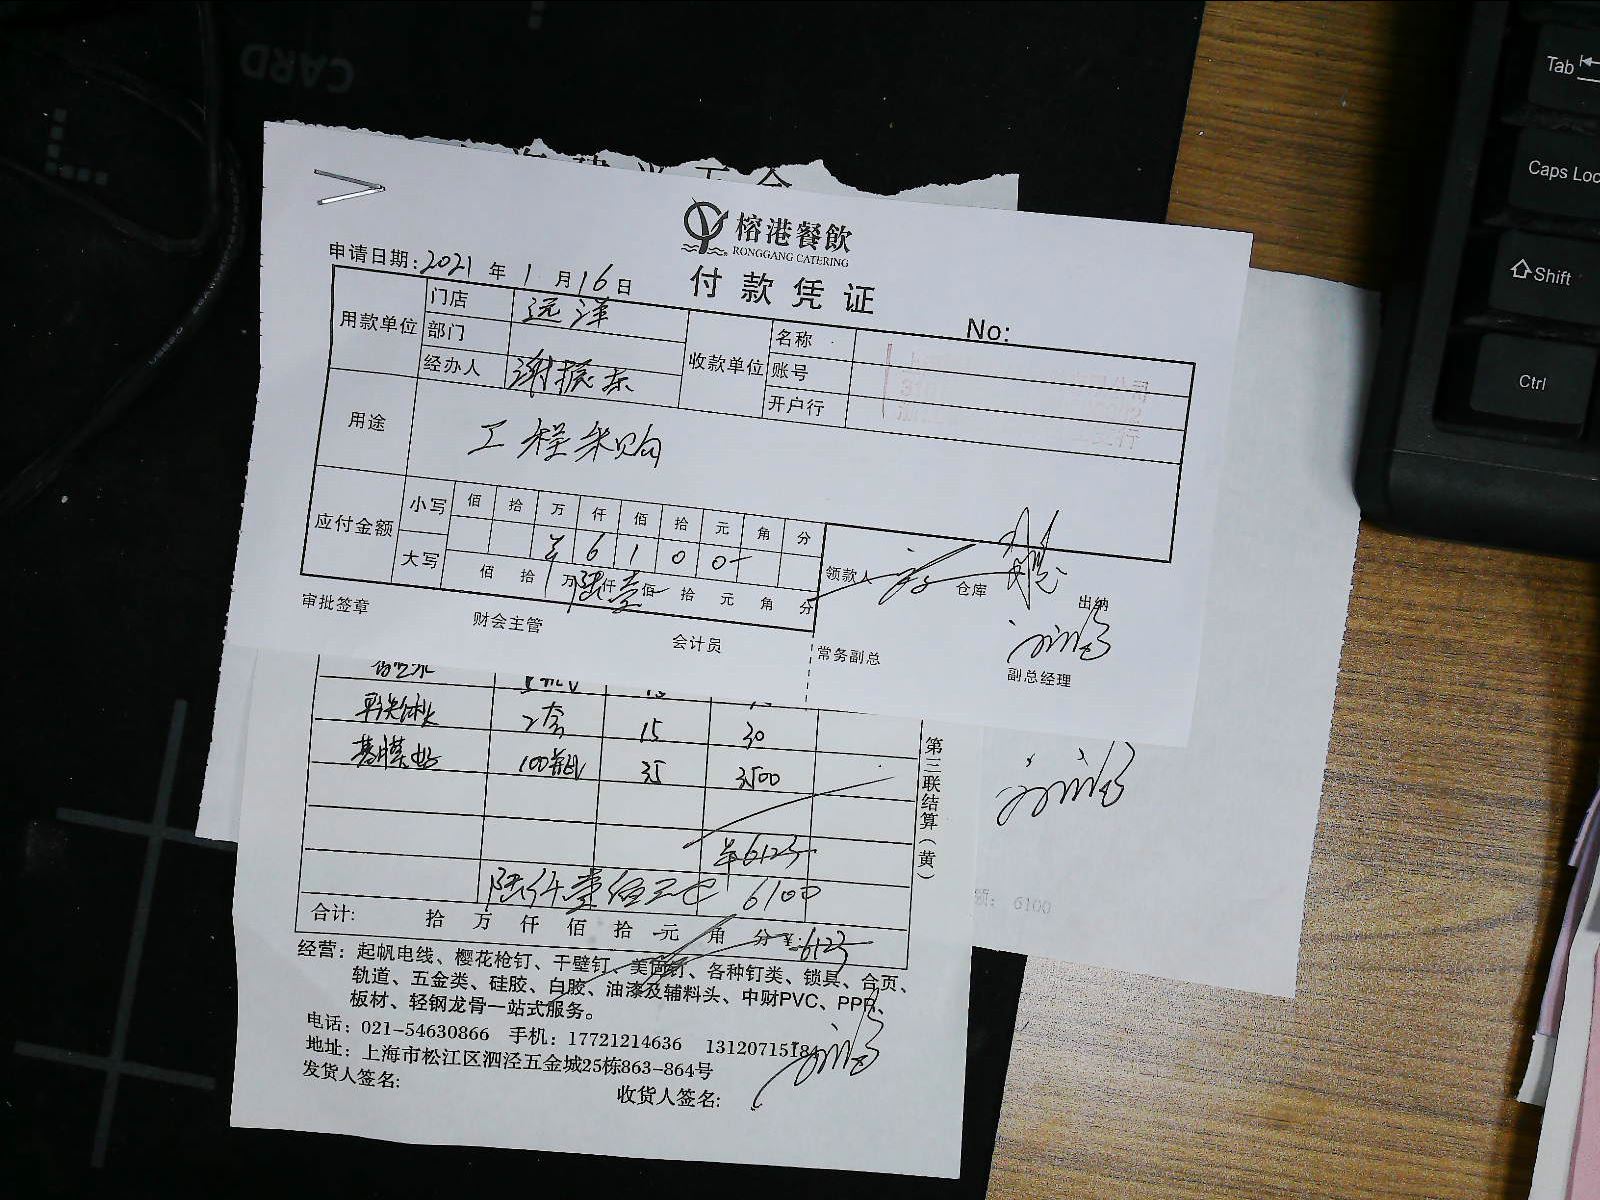 CARD
榕港餐飲
RONGGANG CATERING
付款凭证
申请日期:2021年1月16日
No:
用款单位 门店 远洋 收款单位 名称
部门 账号
经办人 谢振东 开户行
用途 工程采购
应付金额 小写 佰 拾 万 仟 佰 拾 元 角 分
¥ 6 1 0 0 -
大写 佰 拾 万 陆仟壹佰 拾 元 角 分
领款人 仓库 出纳
审批签章 财会主管 会计员 常务副总 副总经理
2套 15 30
100瓶 35 3500
¥6123
陆仟壹佰元 6100
合计: 拾 万 仟 佰 拾 元 角 分 ¥:6123
第三联结算(黄)
经营: 起帆电线、樱花枪钉、干壁钉、美固钉、各种钉类、锁具、合页、
轨道、五金类、硅胶、白胶、油漆及辅料头、中财PVC、PPR、
板材、轻钢龙骨一站式服务。
电话: 021-54630866 手机: 17721214636 13120715184
地址: 上海市松江区泗泾五金城25栋863-864号
发货人签名:
收货人签名:
额: 6100
Tab
Caps Loc
Shift
Ctrl